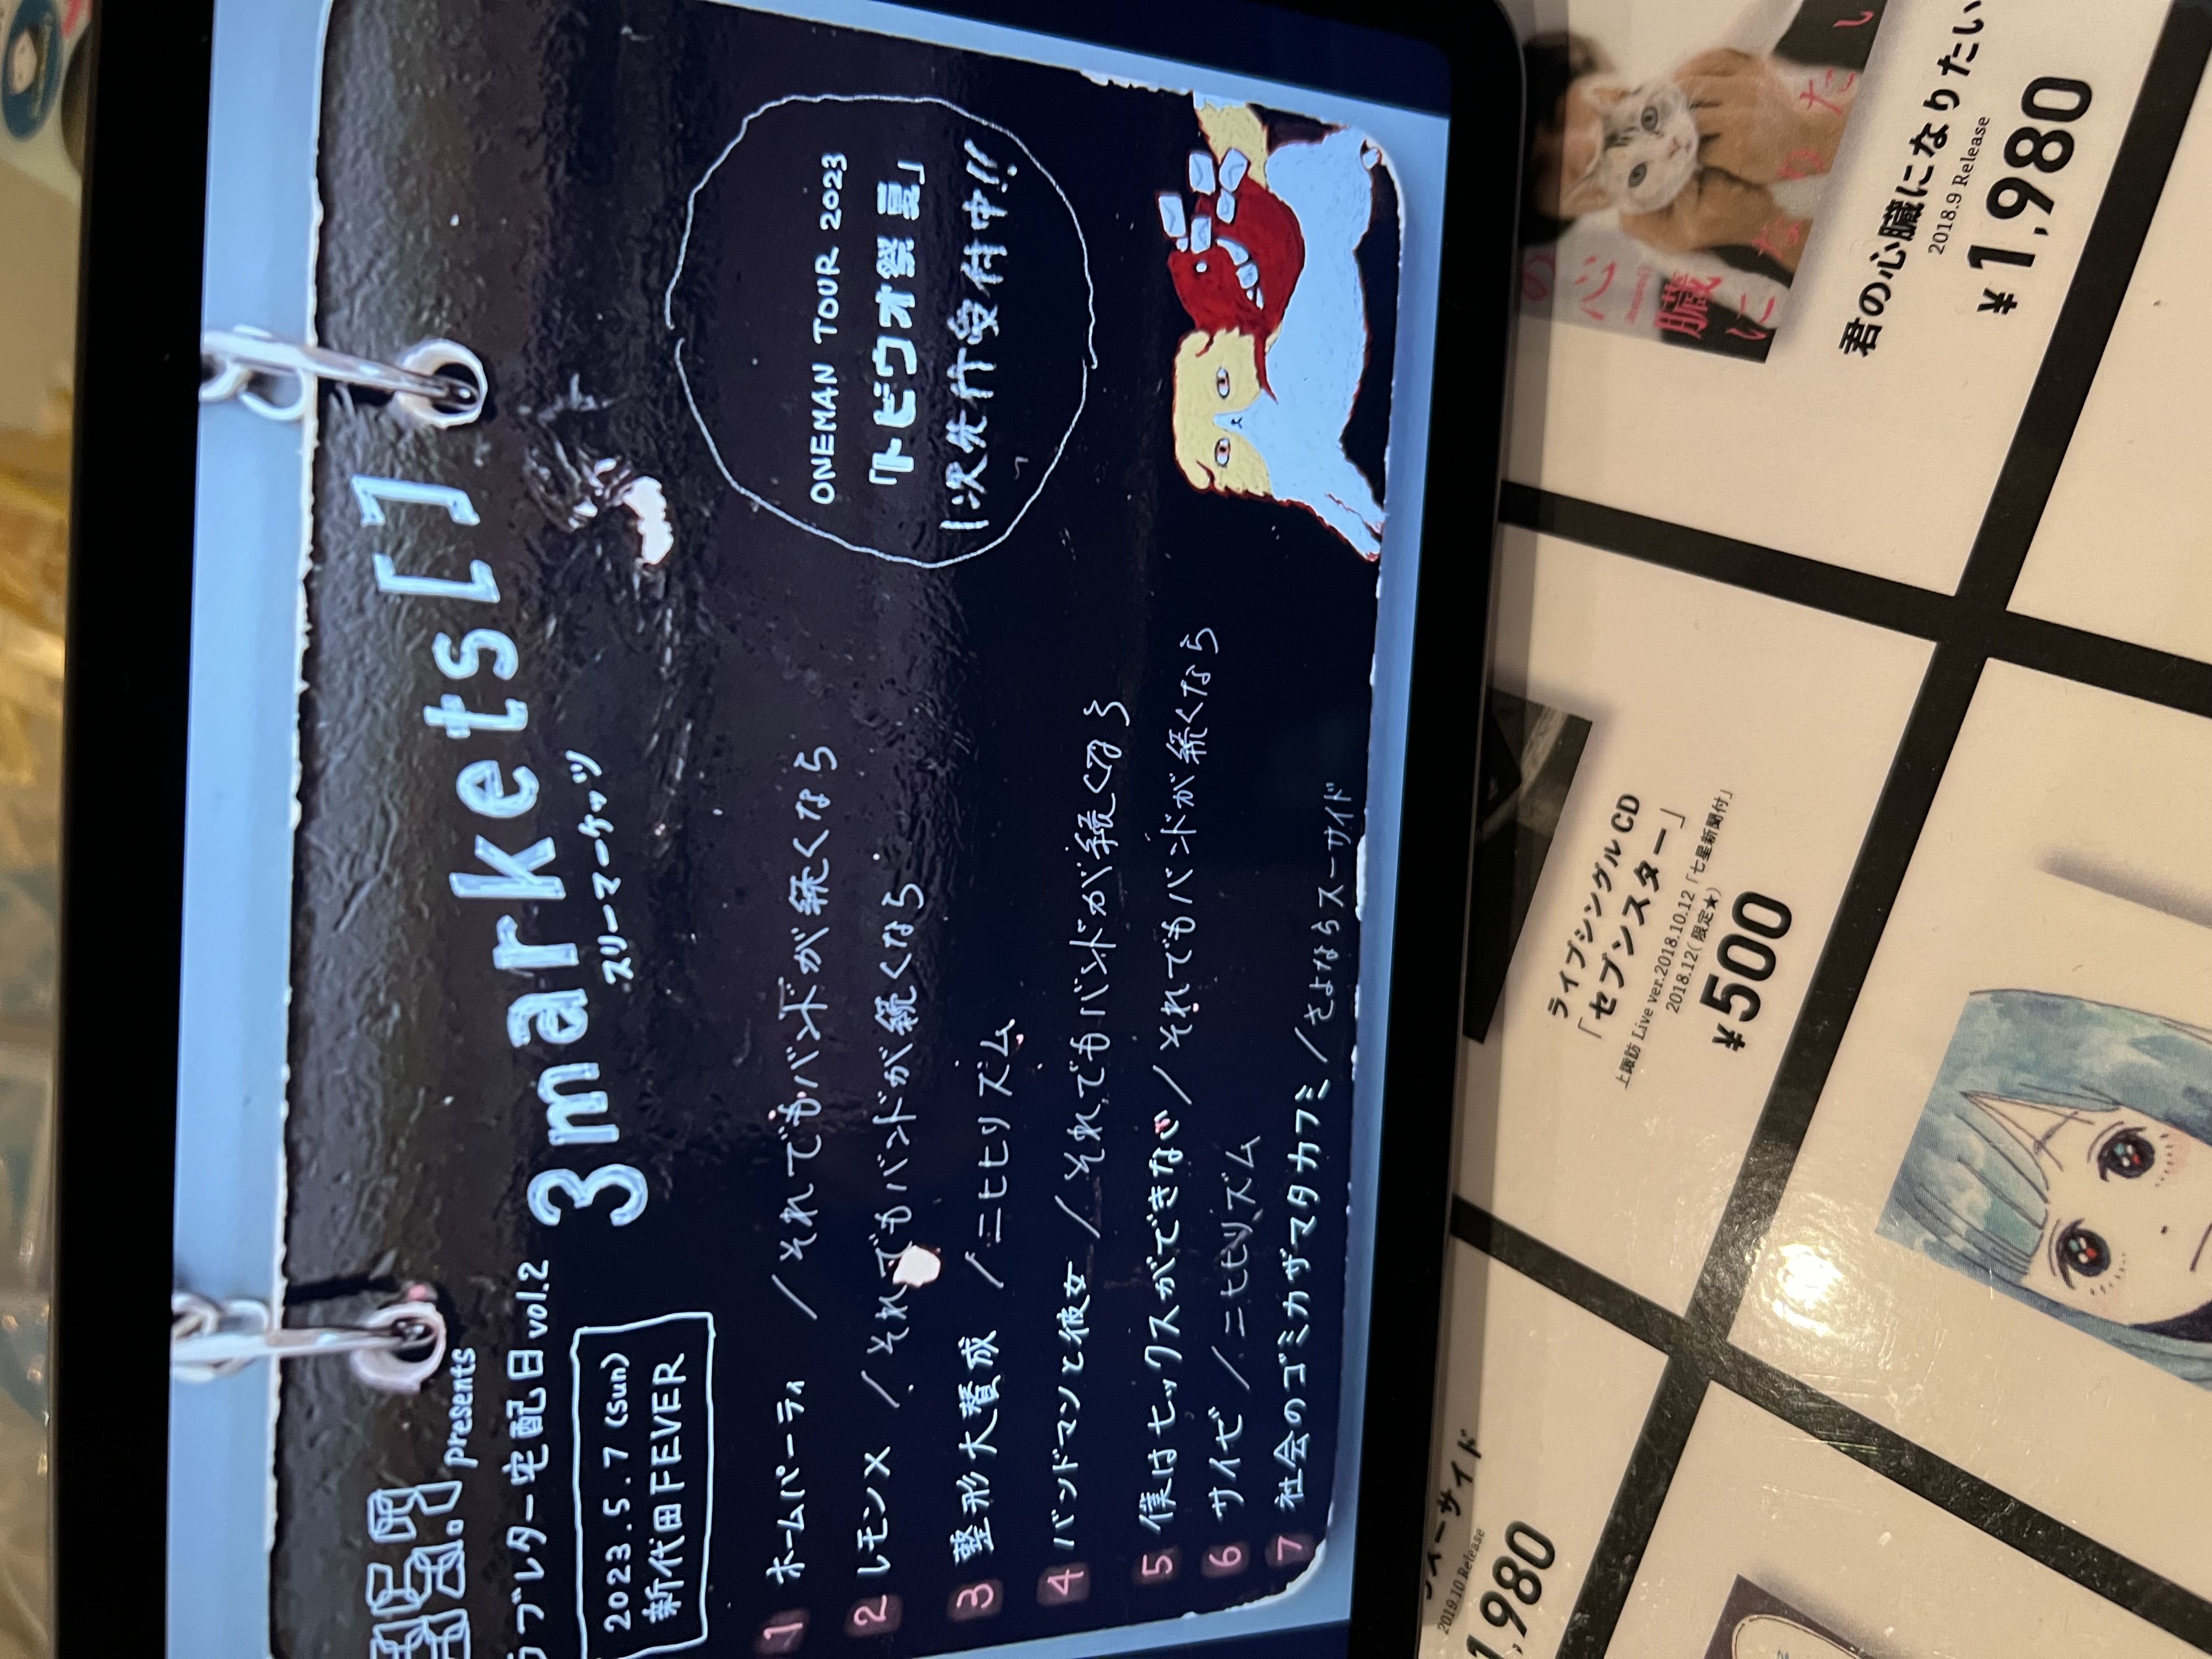 presents
ラブレター宅配日 vol.2
2023.5.7 (Sun)
新代田FEVER
3markets[]
スリーマーケッツ
1 ホームパーティ /それでもバンドが続くなら
2 レモン× /それでもバンドが続くなら
3 整形大賛成 /ニヒヒリズム
4 バンドマンと彼女 /それでもバンドが続くなら
5 僕はセックスができない/それでもバンドが続くなら
6 サイゼ /ニヒヒリズム
7 社会のゴミカザマタカフミ/さよならスーサイド
ONEMAN TOUR 2023
「トビウオ祭 夏」
1次先行受付中!!
スーサイド
2019.10 Release
1,980
ライブシングルCD
「セブンスター」
上諏訪 Live ver.2018.10.12「七星新聞付」
2018.12(限定★)
¥500
の心
臓
になりたい
君の心臓になりたい
2018.9 Release
¥1,980